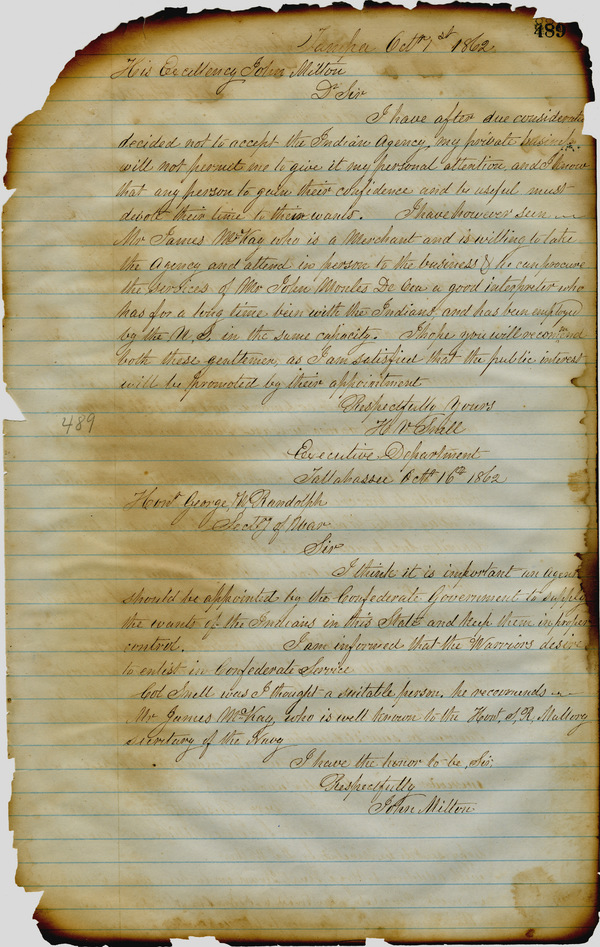 489
Tampa Octr 1st 1862
His Excellency John Milton
Dr Sir
I have after due consideration
decided not to accept the Indian Agency, my private business
will not permit me to give it my personal attention, and I know
that any person to gain their confidence and be useful must
devote their time to their wants. I have however seen
Mr James McKay who is a Merchant and is willing to take
the Agency and attend in person to the business & he can procure
the services of Mr John Montes De Oca a good interpreter who
has for a long time been with the Indians and has been employed
by the U.S. in the same capacity. I hope you will recommend
both these gentlemen, as I am satisfied that the public interest
will be promoted by their appointment
Respectfully Yours
H V Snell
489
Executive Department
Tallahassee Octr 16th 1862
Honl George W Randolph
Secty of War
Sir
I think it is important an agent
should be appointed by the Confederate Government to supply
the wants of the Indians in this State and keep them in proper
control. I am informed that the Warriors desire
to enlist in Confederate Service
Col Snell was I thought a suitable person, he recommends
Mr James McKay, who is well known to the Honl S. R. Mallory
secretary of the Navy
I have the honor to be, Sir,
Respectfully
John Milton